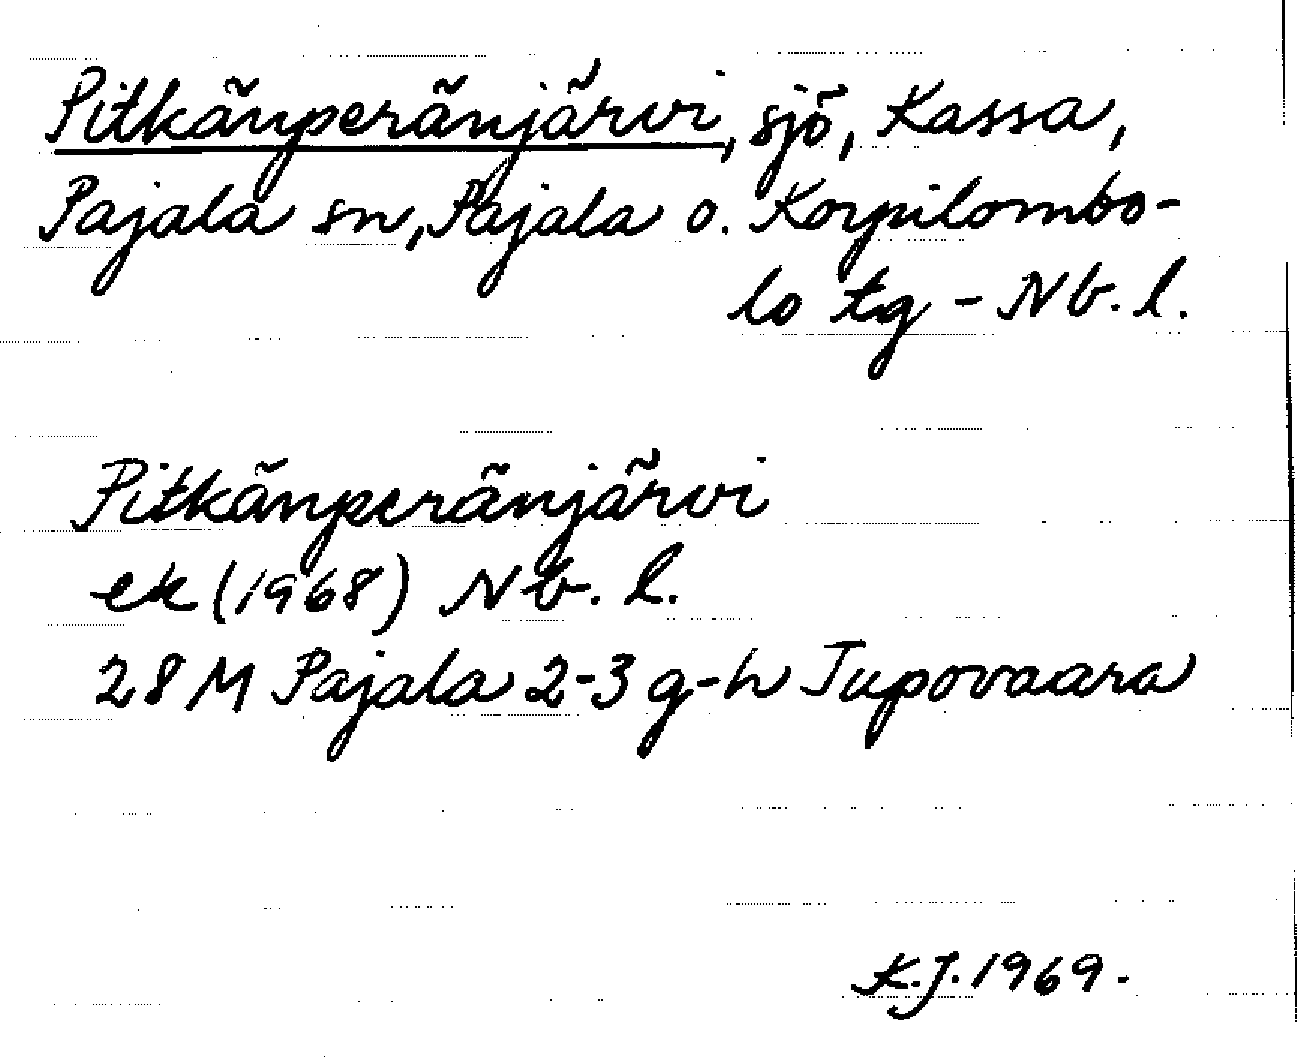 Pitkänperänjärvi, sjö, Kassa,
Pajala sn, Pajala o. Korpilombo-
lo tg - Nb. l.
Pitkänperänjärvi
ek (1968) Nb. l.
28 M Pajala 2-3 g-h Jupovaara
K.J. 1969.